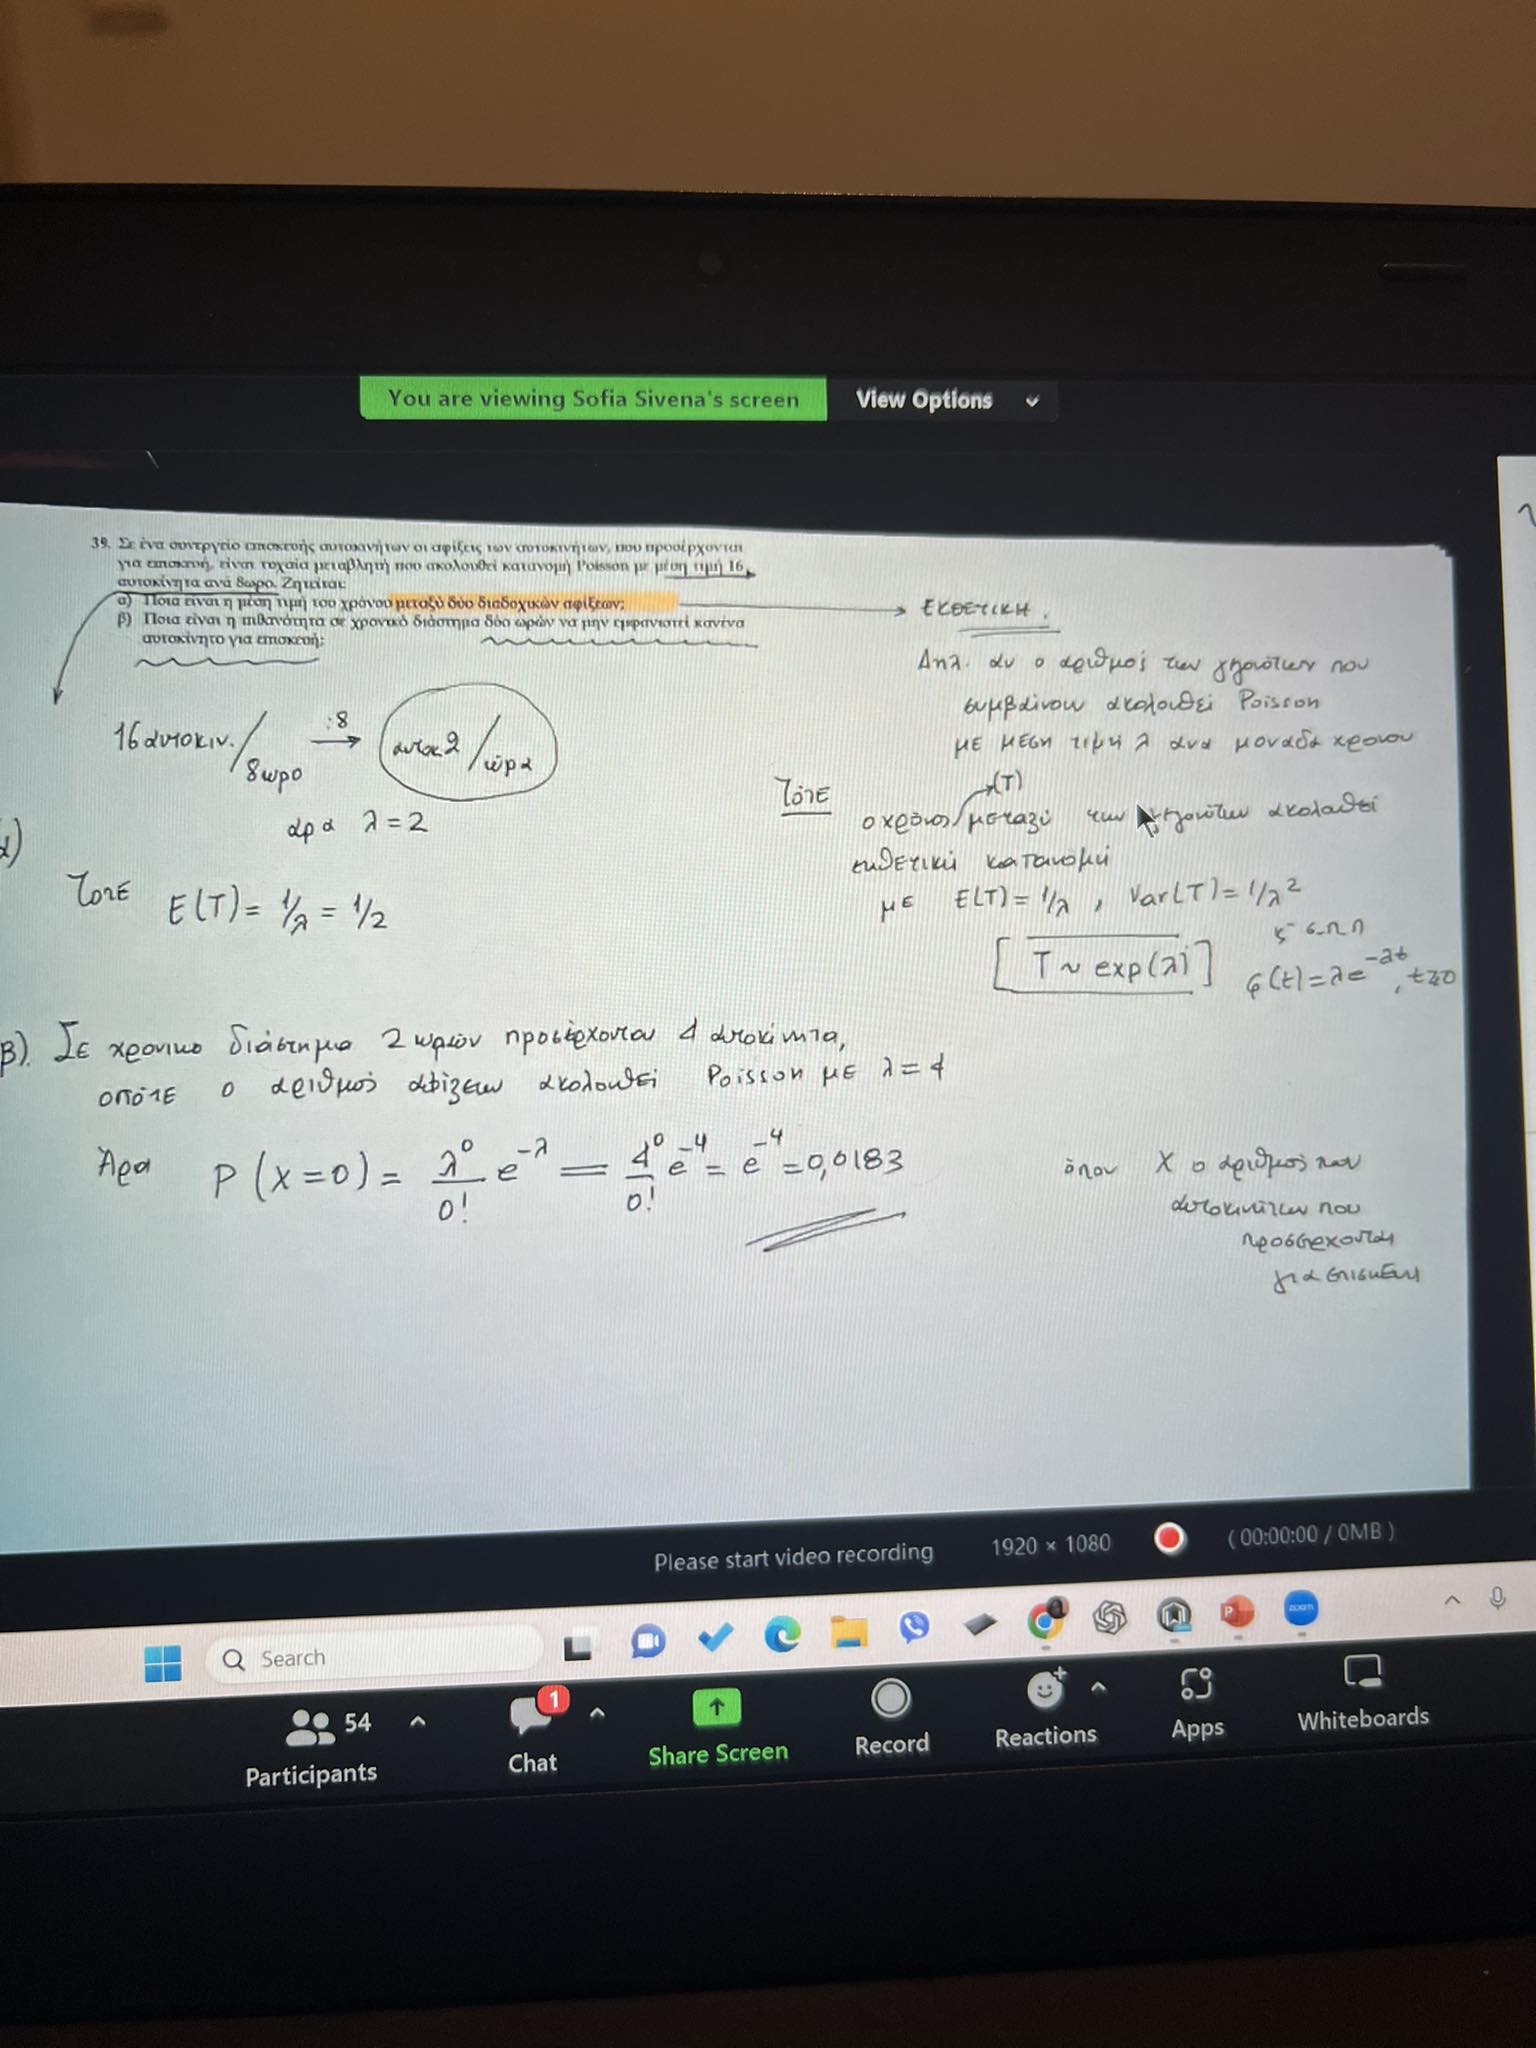 You are viewing Sofia Sivena's screen
View Options
39. Σε ένα συνεργείο επισκευής αυτοκινήτων οι αφίξεις των αυτοκινήτων, που προσέρχονται
για επισκευή, είναι τυχαία μεταβλητή που ακολουθεί κατανομή Poisson με μέση τιμή 16
αυτοκίνητα ανά 8ωρο. Ζητείται:
α) Ποια είναι η μέση τιμή του χρόνου μεταξύ δύο διαδοχικών αφίξεων;
β) Ποια είναι η πιθανότητα σε χρονικό διάστημα δύο ωρών να μην εμφανιστεί κανένα
αυτοκίνητο για επισκευή;
ΕΚΘΕΤΙΚΗ.
Δηλ. αν ο αριθμός των γεγονότων που
συμβαίνουν ακολουθεί Poisson
με μεση τιμή λ ανα μοναδα χρονου
Τότε
(T)
ο χρόνος μεταξύ των γεγονότων ακολουθεί
εκθετική κατανομή
με E(T) = 1/λ , Var(T) = 1/λ²
[ T ~ exp(λ) ]
ς σ.π.π
(t) = λe^-λt, t≥0
16 αυτοκιν./8ωρο :8 → αυτοκ 2/ώρα
άρα λ = 2
α)
Τοτε E(T) = 1/λ = 1/2
β). Σε χρονικο διάστημα 2 ωρών προσέρχονται 4 αυτοκίνητα,
οπότε ο αριθμός αφίξεων ακολουθεί Poisson με λ = 4
Άρα P(X=0) = λ⁰/0! e^-λ = 4⁰/0! e^-4 = e^-4 = 0,0183
όπου X ο αριθμός των
αυτοκινήτων που
προσερχονται
για επισκευη
Please start video recording 1920 × 1080 (00:00:00 / 0MB)
Search
zoom
54
1
Participants
Chat
Share Screen
Record
Reactions
Apps
Whiteboards